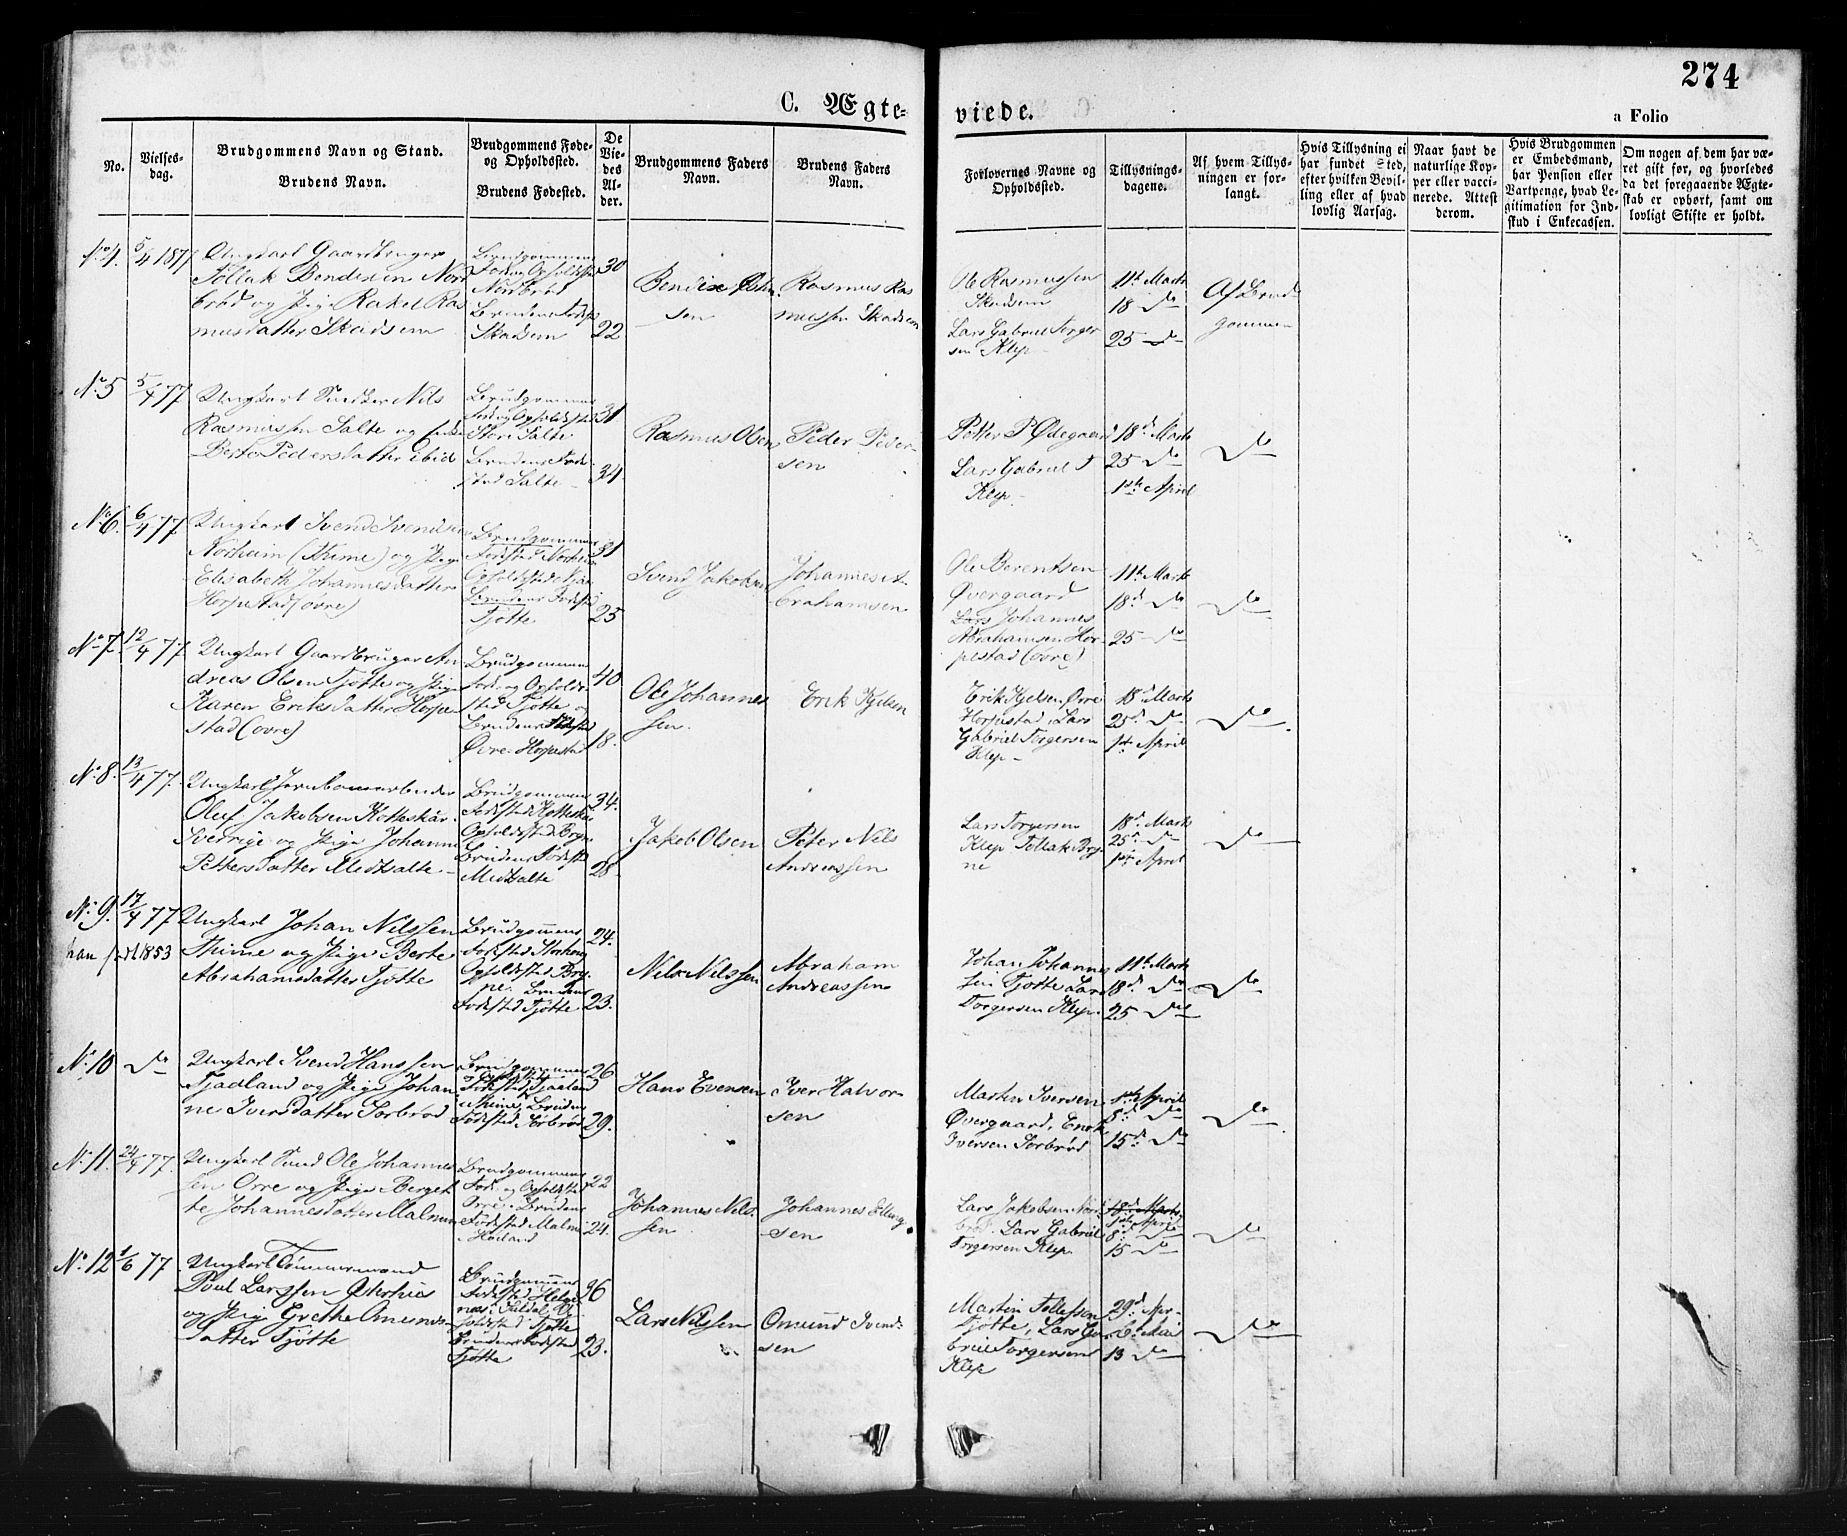 274
C. Ægte-
viede.
a Folio
No.
Vielses-
dag.
Brudgommens Navn og Stand.
Brudens Navn.
Brudgommens Føde-
og Opholdssted.
Brudens Fødested.
De
Vie-
des
Al-
der.
Brudgommens Faders
Navn.
Brudens Faders
Navn.
Forlovernes Navne og
Opholdssted.
Tillysnings-
dagene.
Af hvem Tillys-
ningen er for-
langt.
Hvis Tillysning ei
har fundet Sted,
efter hvilken Bevil-
ling eller af hvad
lovlig Aarsag.
Naar havt de
naturlige Kop-
per eller vacci-
nerede. Attest
derom.
Hvis Brudgommen
er Embedsmand,
har Pension eller
Vartpenge, hvad Le-
gitimation for Ind-
skud i Enkecassen.
Om nogen af dem har væ-
ret gift før, og hvorledes
da det foregaaende Ægte-
stab er ophørt, samt om
lovligt Skifte er holdt.
No 4. 5/4 1877
Ungkarl Gaardbruger
Tollak Bendixsen Nor
brød og Pige Rakel Ras
musdatter Skadsem
Brudgommens
Føde og Opholdssted
Norbrød
Brudens Fødest
Skadsem
30
22
Bendix
sen
Rasmus Ras
mussen Skadsem
Ole Rasmussen
Skadsem
Lars Gabriel Torger
sen Klep
11te Marts
18 do
25 do
Af Brud-
gommen
No 5 5/4 77
Ungkarl Snedker Nils
Rasmussen Salte og
Berte Pedersdatter ibid
Brudgommens
Føde og Opholdssted
Store Salte
Brudens Føde-
sted Salte
31
34
Rasmus Olsen
Peder Peder-
sen
Petter P Ødegaard
Lars Gabriel T
Klep
18d Marts
25 do
1ste April
do
No 6. 6/4 77
Ungkarl Svend Svendsen
Norheim (Thime) og Pige
Elisabeth Johannesdatter
Horpestad (øvre)
Brudgommens
Fødested Norheim
Opholdssted
Brudens Fødested
Tjøtte
31
25
Svend Jakobsen
Johannes A-
brahamsen
Ole Berentsen
Øvergaard
Lars Johannes
Abrahamsen Hor-
pestad (øvre)
11te Marts
18d do
25 do
do
No 7. 12/4 77
Ungkarl Gaardbruger An
dreas Olsen Tjøtte og Pige
Karen Eriksdatter Horpe
stad (øvre)
Brudgommens
Føde og Opholds-
sted Tjøtte og
Brudens Fødested
Øvre Horpestad
40
18.
Ole Johannes
sen.
Erik Kjelsen
Erik Kjelsen Øvre
Horpestad, Lars
Gabriel Torgersen
Klep
18d Marts
25d do
1ste April
do
No 8. 13/4 77.
Ungkarl Jernbanearbeider
Oluf Jakobsen
Sverrige og Pige Johanne
Pettersdatter Medsalte
Brudgommens
Fødested
Opholdssted Bryne
Brudens Fødested
Medsalte
34.
28
Jakob Olsen
Peter Nels
Andreassen
Lars Torgersen
Klep Tollak Bry-
ne
18d Marts
25d do
1ste April
do
No 9. 17/4 77.
han født 1853
Ungkarl Johan Nilssen
Thime og Pige Berte
Abrahamsdatter Tjøtte
Brudgommens
Fødested
Opholdssted Bry-
ne. Brudens
Fødested Tjøtte
24.
23.
Nils Nilssen
Abraham
Andreassen
Johan Johannes
sen Tjøtte Lars
Torgersen Klep.
11te Marts
18d do
25 do
do
No 10 do
Ungkarl Svend Hanssen
Tjadland og Pige Johan
ne Iversdatter Sørbrød
Brudgommens
Fødested Tjaaland
Thime, Brudens
Fødested Sørbrød
26
29.
Hans Evensen
Iver Halvor-
sen
Martin Iversen
Øvergaard, Enok
Iversen Sørbrød
1ste April
8d do
15d do
do
No 11. 24/4 77.
Ungkarl Smed Ole Johannes
sen Orre og Pige Berget
te Johannesdatter Malmin
Brudgommens
Føde og Opholdssted
Orre. Brudens
Fødested Malmin
Høiland
22
24.
Johannes Nils-
sen
Johannes Elling
sen
Lars Jakobsen Nor-
brød. Lars Gabriel
Torgersen Klep.
18d Marts
1ste April
8d do
15 do
do
No 12 1/6 77
Ungkarl Tømmermand
Poul Larssen Østerhus
og Pige Grethe Omunds-
datter Tjøtte
Brudgommens
Fødested
Suldal, Op-
holdssted Tjøtte
Brudens Fødested
Tjøtte
36
23.
Lars Nilssen
Omund Svend-
sen
Martin Tollefssen
Tjøtte, Lars Ga-
briel Torgersen
Klep
29d Apr-
6 Mai
13 do
do